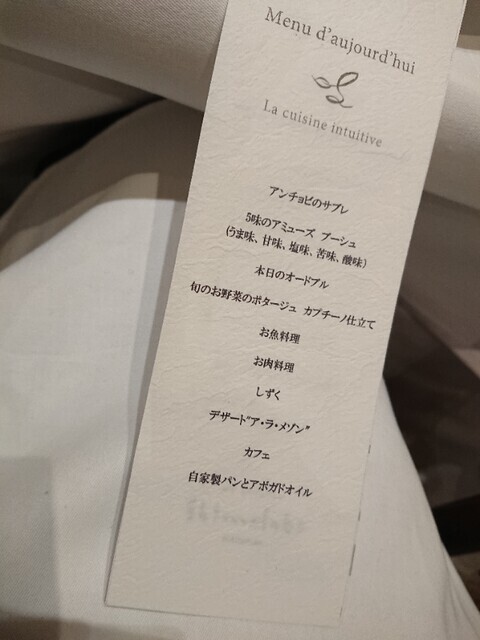 Menu d'aujourd'hui
La cuisine intuitive
アンチョビのサブレ
5味のアミューズ ブーシュ
(うま味、甘味、塩味、苦味、酸味)
本日のオードブル
旬のお野菜のポタージュ カプチーノ仕立て
お魚料理
お肉料理
しずく
デザート"ア・ラ・メゾン"
カフェ
自家製パンとアボガドオイル